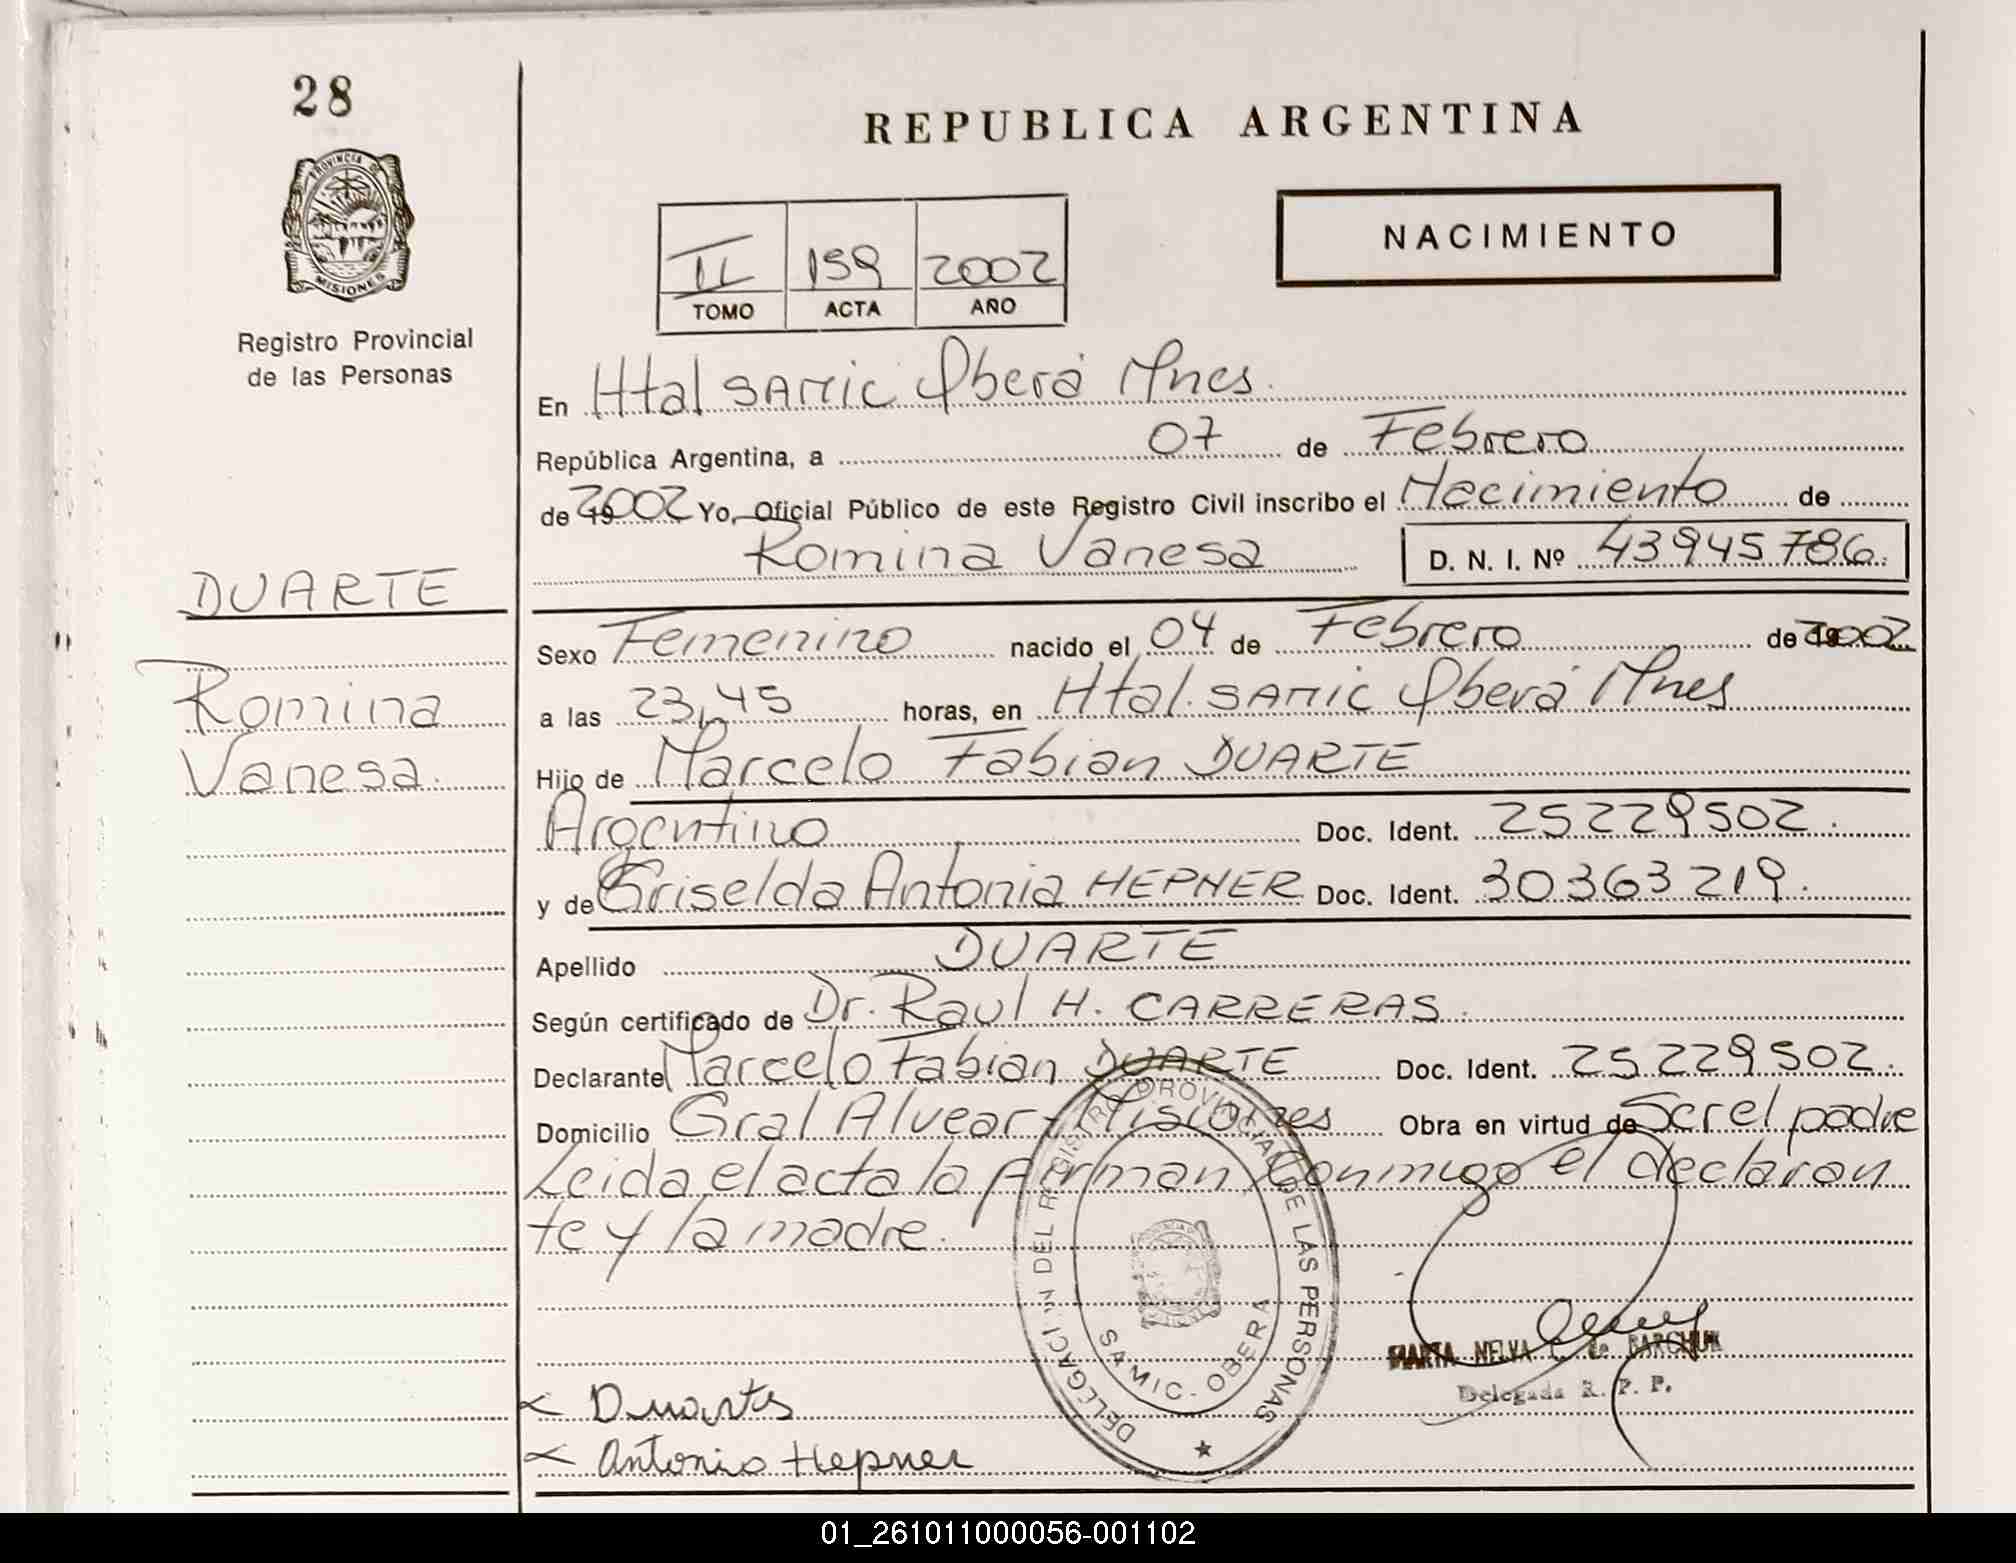 28
PROVINCIA DE
MISIONES
Registro Provincial
de las Personas
DUARTE
Romina
Vanesa.
REPUBLICA ARGENTINA
II 159 2002
TOMO ACTA AÑO
NACIMIENTO
En Htal SAMIC Oberá Mnes.
República Argentina, a 07 de Febrero
de 19 2002 Yo, Oficial Público de este Registro Civil inscribo el Nacimiento de
Romina Vanesa D. N. I. Nº 43945786.
Sexo Femenino nacido el 04 de Febrero de 19 2002
a las 23,45 horas, en Htal. SAMIC Oberá Mnes
Hijo de Marcelo Fabian DUARTE
Argentino Doc. Ident. 25229502.
y de Griselda Antonia HEPNER Doc. Ident. 30363219.
Apellido DUARTE
Según certificado de Dr. Raul H. CARRERAS.
Declarante Marcelo Fabian DUARTE Doc. Ident. 25229502.
Domicilio Gral Alvear - Misiones Obra en virtud de Ser el padre
Leida el acta la firman Conmigo el declaran
te y la madre.
DELEGACION DEL REGISTRO PROVINCIAL DE LAS PERSONAS
SAMIC - OBERA
MARTA NELVA de BARCHUK
Delegada R. P. P.
Duarte
Antonia Hepner
01_261011000056-001102